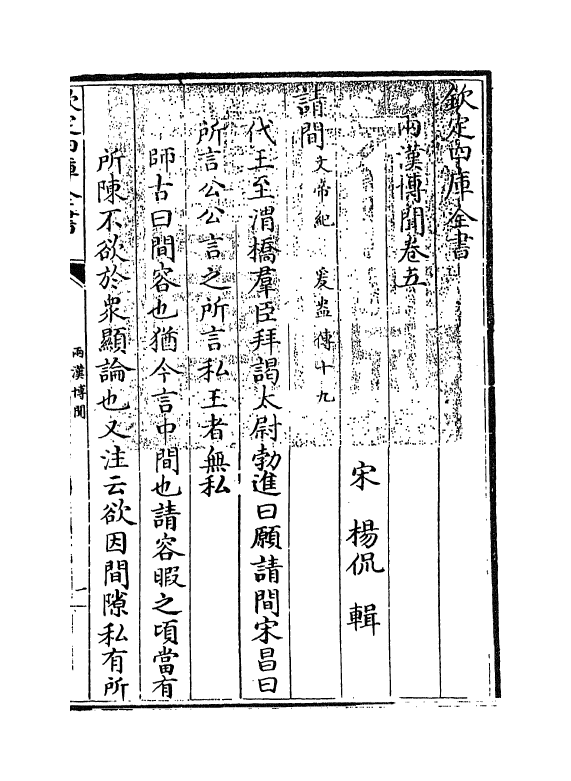 欽定四庫全書
兩漢博聞卷五
宋 楊侃 輯
請間文帝紀 爰盎傳十九
代王至渭橋羣臣拜謁太尉勃進曰願請間宋昌曰
所言公公言之所言私王者無私
師古曰間容也猶今言中間也請容暇之頃當有
所陳不欲於衆顯論也又注云欲因間隙私有所
欽定四庫全書
兩漢博聞
一